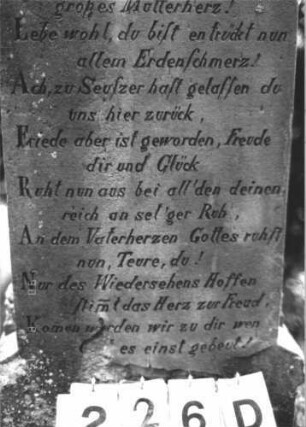 großes Mutterherz!
Lebe wohl, du bist entrückt nun
allem Erdenschmerz!
Ach, zu Seufzer hast gelassen du
uns hier zurück,
Friede aber ist geworden, Freude
dir und Glück
Ruht nun aus bei all' den deinen,
reich an sel'ger Ruh,
An dem Vaterherzen Gottes ruhst
nun, Teure, du!
Nur des Wiedersehens Hoffen
stim̅t das Herz zur Freud,
Komen werden wir zu dir wen
es einst gebeut!
226D